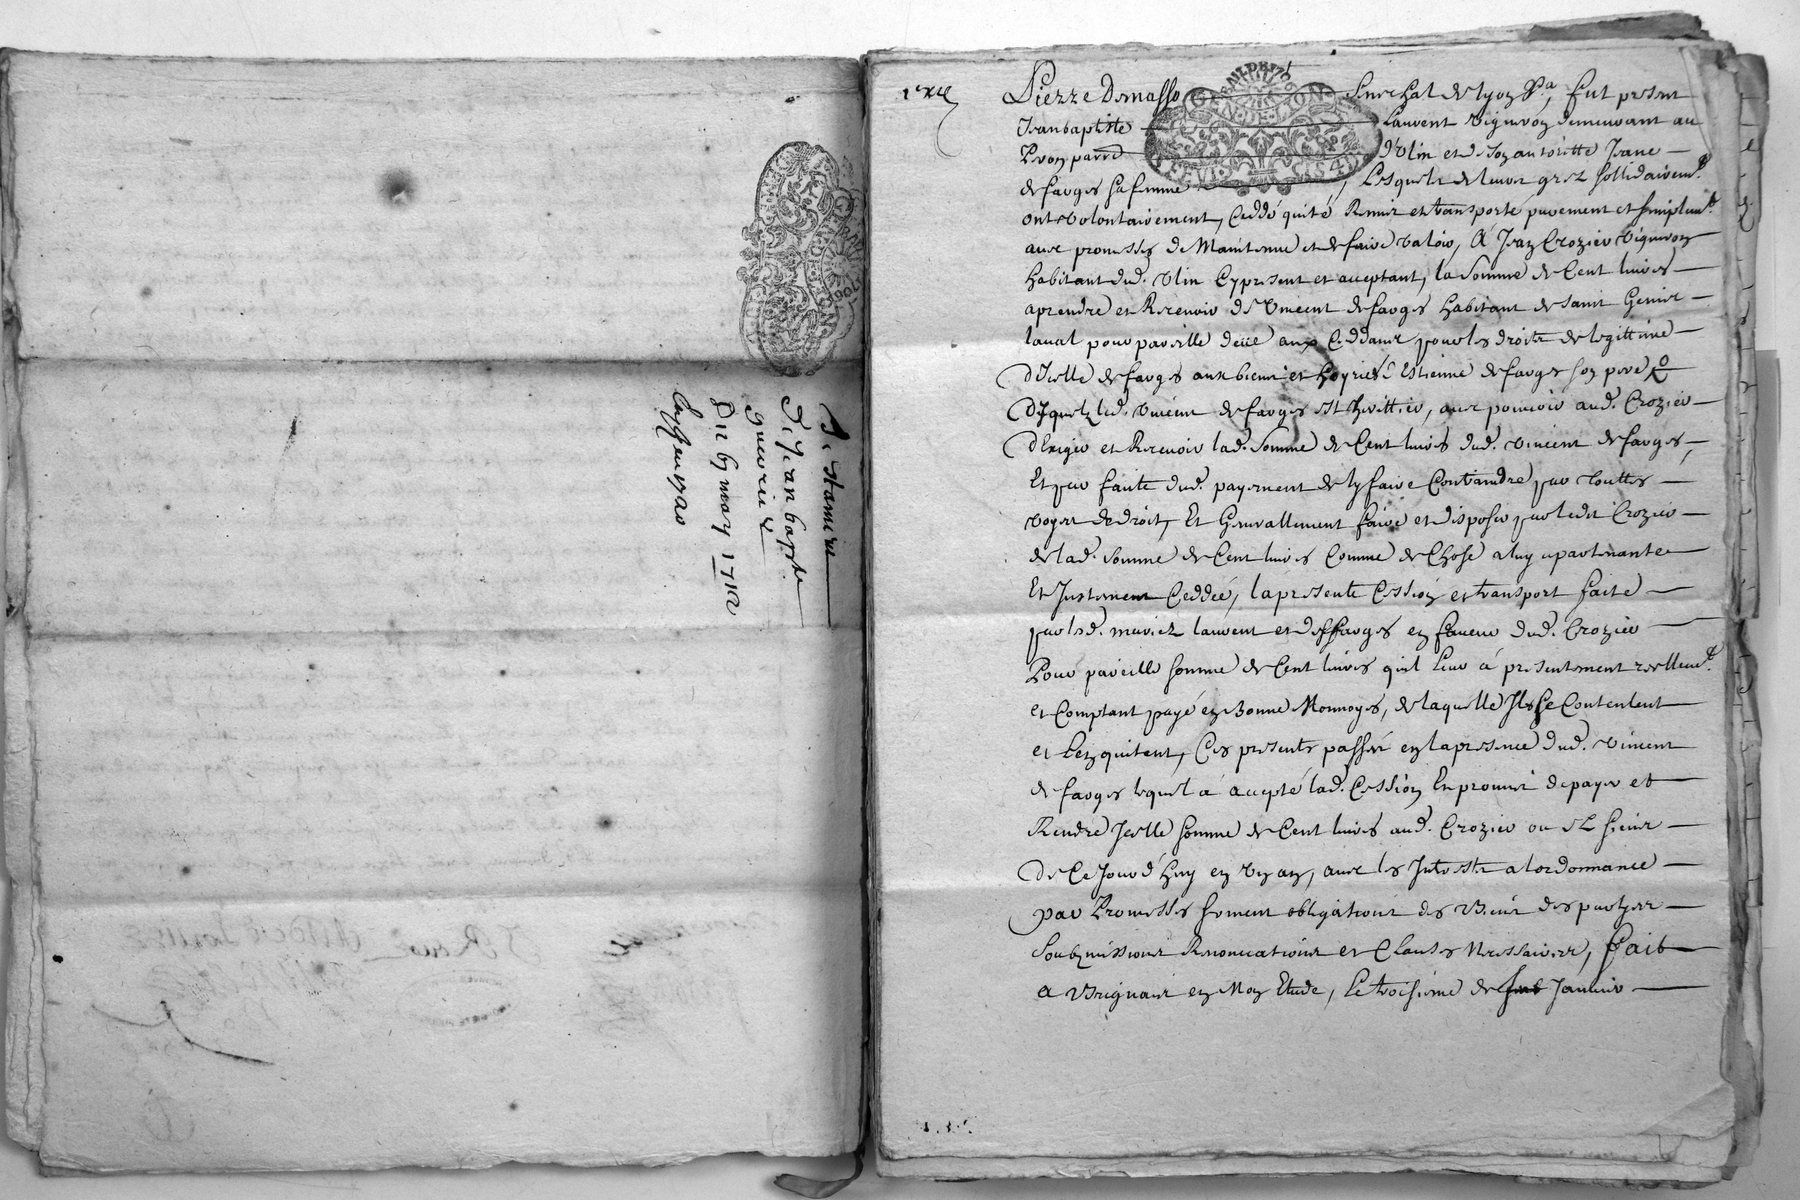 Testament
De Jean bapte
guerrier
Du 6 may 1712
Pierre Demasso Senechal de Lyon &a, fut present
Jean baptiste Laurent vigneron demeurant au
d'Ulin et de son autoritte Jeane
de farges sa femme, Lesquels de leurs grez sollidairemt
ont volontairement, Ceddé quité Remis et transporté purement et simplemt
avec promesses de Maintenir et de faire valoir, A Jean Crozier vigneron
habitant dud. Ulin Cy present et acceptant, la Somme de Cent livres
a prendre et Recevoir de Vincent de farges habitant de saint Genis
laval pour pareille deüe aux Ceddants pour les droits de legittime
D'Icelle de farges aux biens et hoyrie d'Estienne de farges son pere
Desquels led. Vincent de farges est herittier, avec pouvoir aud. Crozier
D'Exiger et Recevoir lad. Somme de Cent livres dud. Vincent de farges,
Et par faute dud. payement de ly faire Contraindre par touttes
voyes de droit, Et Generallement faire et disposer par ledit Crozier
de lad. Somme de Cent livres Comme de Chose a luy apartenante
Et Justement Ceddée, la presente Cession et transport faite
par lesd. mariez laurent et deffarges en faveur dud. Crozier
Pour pareille somme de Cent livres quil leur á presentement reellemt
et Comptant payé en Bonne Monnoyes, de laquelle Ils se Contentent
et Len quitent, Ces presents passéé en la presence dud. Vincent
de farges lequel á accepté lad. Cession En promis de payer et
Rendre Icelle somme de Cent livres aud. Crozier ou es siens
De Ce Jourd'huy en un an, avec les Interests a lordonnance
par Promesses serment obligations des Biens des partyes
Soubmissions Renonciations et Clauses Necessaires, fait
A Brignais en Mon Etude, Le troisieme de Janvier